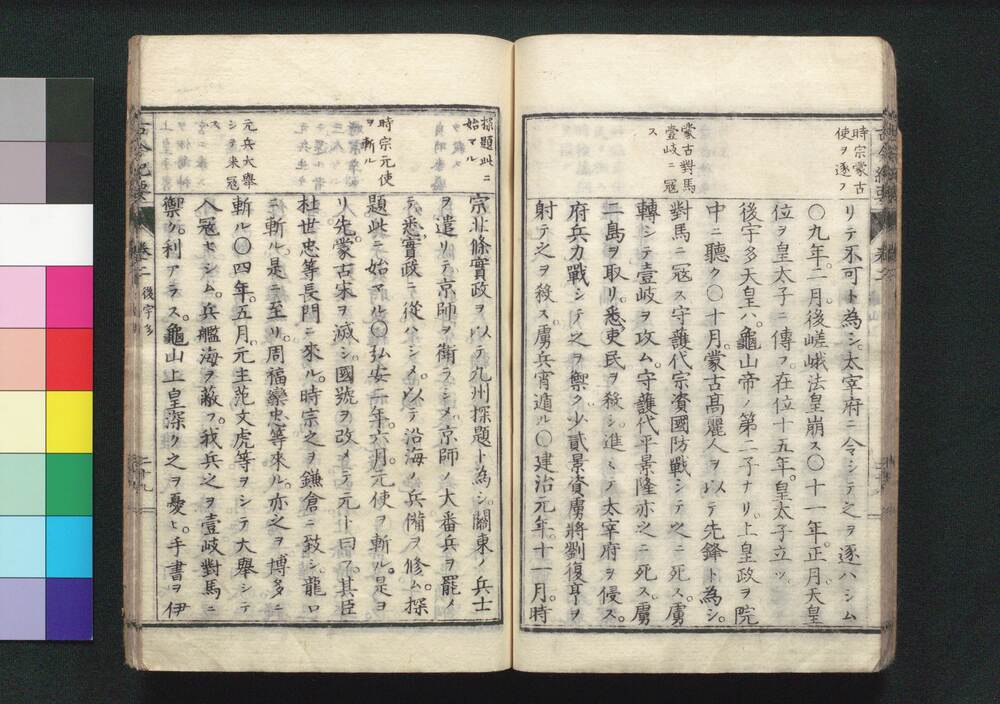 時宗蒙古
使ヲ逐フ
蒙古對馬
壹岐ニ冦
ス
リテ不可ト為シ。太宰府ニ令シテ之ヲ逐ハシム
〇九年。二月。後嵯峨法皇崩ス〇十一年。正月。天皇
位ヲ皇太子ニ傳フ。在位十五年。皇太子立ツ。
後宇多天皇ハ。龜山帝ノ第二子ナリ。上皇政ヲ院
中ニ聽ク〇十月。蒙古高麗人ヲ以テ先鋒ト為シ。
對馬ニ冦ス守護代宗資國防戰シテ之ニ死ス。虜
轉シテ壹岐ヲ攻ム。守護代平景隆亦之ニ死ス。虜
二島ヲ取リ。悉ク吏民ヲ殺シ。進ミテ太宰府ヲ侵ス。
府兵力戰シテ之ヲ禦ク少貳景資虜將劉復亨ヲ
射テ之ヲ殺ス。虜兵宵遁ル〇建治元年。十一月。時
探題此ニ
始マル
時宗元使
ヲ斬ル
元兵大擧
シテ來冦
ス
宗北條實政ヲ以テ九州探題ト為シ。關東ノ兵士
ヲ遣リテ京師ヲ衛ラシメ。京師ノ大番兵ヲ罷メ
テ悉ク實政ニ從ハシメ。以テ沿海ノ兵備ヲ修ム。探
題此ニ始マル〇弘安二年。六月。元使ヲ斬ル。是ヨ
リ先。蒙古宋ヲ滅シ。國號ヲ改メテ元ト曰フ。其臣
杜世忠等長門ニ來ル。時宗之ヲ鎌倉ニ致シ。龍口
ニ斬ル。是ニ至リ。周福欒忠等來ル。亦之ヲ博多ニ
斬ル〇四年。五月。元主范文虎等ヲシテ大擧シテ
入冦セシム。兵艦海ヲ蔽フ。我兵之ヲ壹岐對馬ニ
禦ク。利アラス。龜山上皇深ク之ヲ憂ヒ。手書ヲ伊
卷二
後宇多